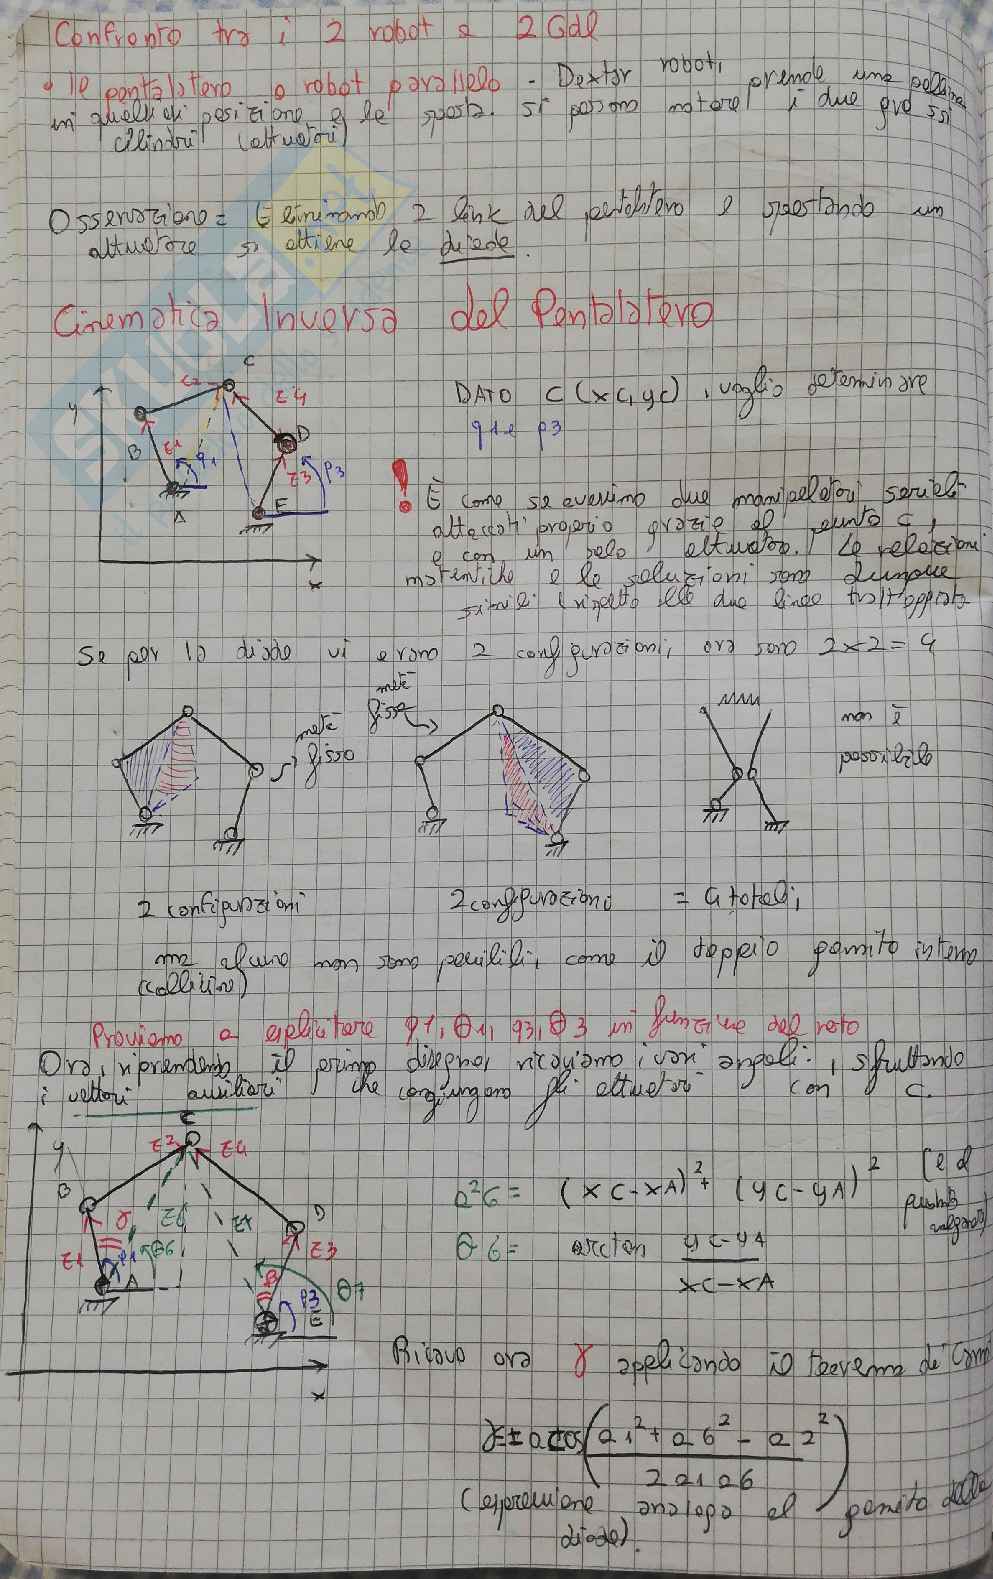 Confronto tra i 2 robot a 2 Gdl
• Il pentalatero o robot parallelo - Dexter robot, prende una pallina
in qualsiasi posizione e la sposta. si possono notare i due grossi
cilindri (attuatori)
Osservazione = Eliminando 2 link del pentalatero e spostando un
attuatore si ottiene la diade.
Cinematica Inversa del Pentalatero
DATO C (xc, yc), voglio determinare
q1 e q3
! È come se avessimo due manipolatori seriali
attaccati proprio grazie al punto C,
e con un solo attuatore. Le relazioni
matematiche e le soluzioni sono dunque
simili (rispetto alle due linee tratteggiate
y C z2 z4 B z1 q1 D z3 q3 A E x
Se per la diade vi erano 2 configurazioni, ora sono 2x2 = 4
metà fisso
metà fissa
non è
possibile
2 configurazioni 2 configurazioni = 4 totali,
ma alcune non sono possibili, come il doppio gomito interno
(collisione)
Proviamo a esplicitare q1, θ1, q3, θ3 in funzione del resto
Ora, riprendendo il primo disegno, ricaviamo i vari angoli, sfruttando
i vettori ausiliari che congiungono gli attuatori con C.
y C z2 z4 B γ z6 z7 D z1 q1 θ6 z3 A β q3 θ7 E x
a²6 = (xC-xA)² + (yC-yA)²
θ6 = arctan yC-yA / xC-xA
Ricavo ora γ applicando il teorema di Carnot
γ=± acos (a1² + a6² - a2² / 2a1a6)
(espressione analoga al gomito della
diade).